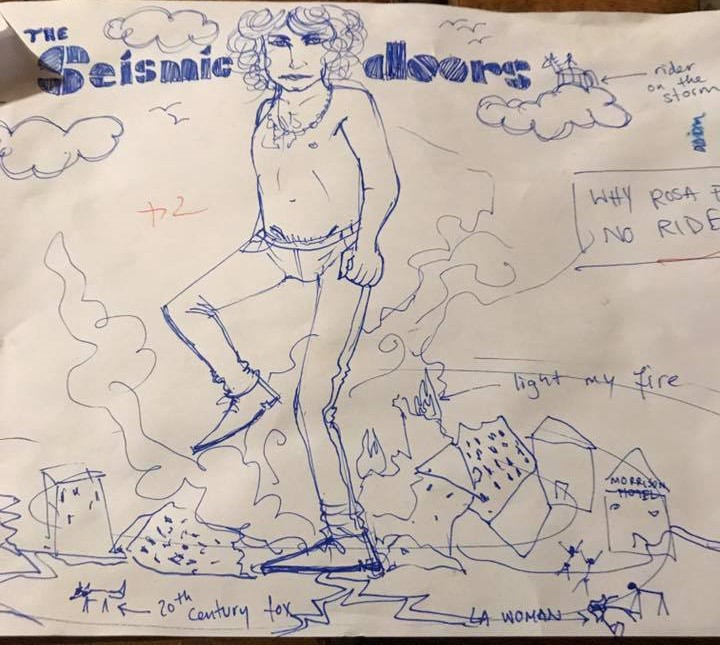 THE
Seismic doors
rider
on the
storm
+2
WHY ROSA
NO RIDE
light my fire
MORRISON
HOTEL
20th
century fox
LA WOMAN